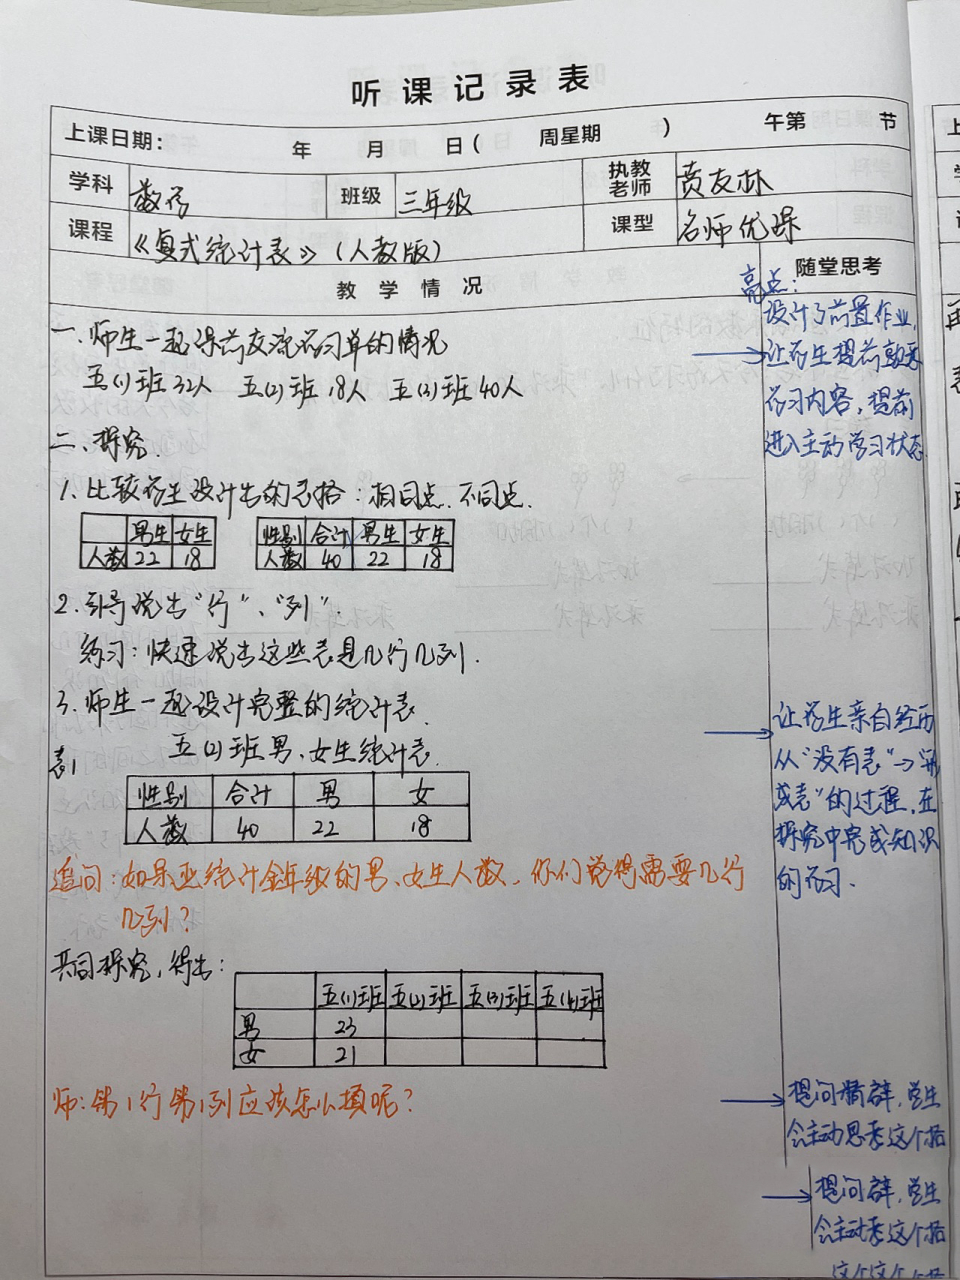 听课记录表
上课日期： 年 月 日（ 周星期 ） 午第 节
学科 数学 班级 三年级 执教老师 贲友林
课程 《复式统计表》（人教版） 课型 名师优课
教学情况 随堂思考
一.师生一起课前交流学习单的情况
五(1)班32人 五(2)班18人 五(3)班40人
二、探究
1.比较学生设计出的表格：相同点.不同点.
男生 女生
人数 22 18
性别 合计 男生 女生
人数 40 22 18
2.引导说出“行”、“列”.
练习：快速说出这些表是几行几列.
3.师生一起设计完整的统计表.
表1 五(2)班男、女生统计表.
性别 合计 男 女
人数 40 22 18
追问：如果要统计全年级的男、女生人数，你们觉得需要几行
几列？
共同探究，得出：
五(1)班 五(2)班 五(3)班 五(4)班
男 23
女 21
师：第1行第1列应该怎么填呢？
亮点：
设计了前置作业，
让学生提前熟悉
学习内容，提前
进入主动学习状态
让学生亲自经历
从“没有表”→“形
成表”的过程，在
探究中完成知识
的学习.
提问精辟，学生
会主动思考这个格
提问辟，学生
会主动考这个格
这个这个格